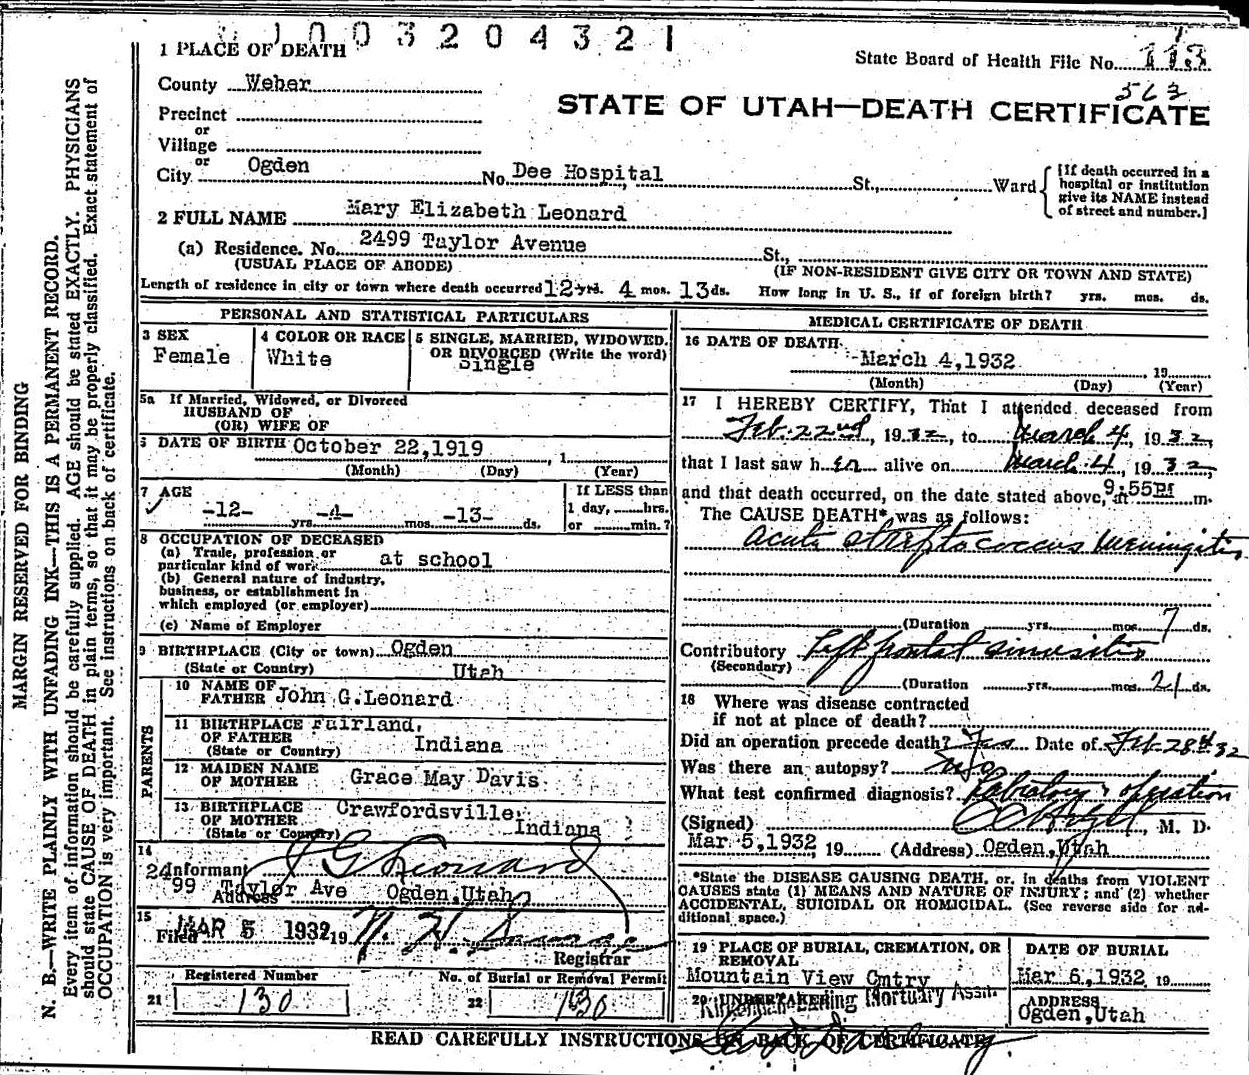 1003204321
1 PLACE OF DEATH
State Board of Health File No. 113
County Weber
563
STATE OF UTAH—DEATH CERTIFICATE
Precinct
or
Village
or
City Ogden No. Dee Hospital St., Ward
[If death occurred in a hospital or institution give its NAME instead of street and number.]
2 FULL NAME Mary Elizabeth Leonard
(a) Residence. No. 2499 Taylor Avenue St.,
(USUAL PLACE OF ABODE) (IF NON-RESIDENT GIVE CITY OR TOWN AND STATE)
Length of residence in city or town where death occurred 12 yrs. 4 mos. 13 ds. How long in U. S., if of foreign birth? yrs. mos. ds.
PERSONAL AND STATISTICAL PARTICULARS
3 SEX
Female
4 COLOR OR RACE
White
5 SINGLE, MARRIED, WIDOWED, OR DIVORCED (Write the word)
Single
5a If Married, Widowed, or Divorced
HUSBAND OF
(OR) WIFE OF
6 DATE OF BIRTH October 22,1919 , 1
(Month) (Day) (Year)
7 AGE
-12- yrs. -4- mos. -13- ds.
If LESS than
1 day, hrs.
or min.?
8 OCCUPATION OF DECEASED
(a) Trade, profession or
particular kind of work at school
(b) General nature of industry,
business, or establishment in
which employed (or employer)
(c) Name of Employer
9 BIRTHPLACE (City or town) Ogden
(State or Country) Utah
PARENTS
10 NAME OF FATHER John G.Leonard
11 BIRTHPLACE OF FATHER (State or Country) Fairland, Indiana
12 MAIDEN NAME OF MOTHER Grace May Davis
13 BIRTHPLACE OF MOTHER (State or Country) Crawfordsville, Indiana
14
Informant J G Leonard
2499 Taylor Ave Ogden,Utah
Address
15
Filed MAR 5 1932 19
Registrar
Registered Number
21 130
No. of Burial or Removal Permit
22 130
MEDICAL CERTIFICATE OF DEATH
16 DATE OF DEATH
March 4,1932 , 19
(Month) (Day) (Year)
17 I HEREBY CERTIFY, That I attended deceased from
Feb. 22nd, 1932, to March 4, 1932,
that I last saw her alive on March 4, 1932,
and that death occurred, on the date stated above, at 9:55PM m.
The CAUSE DEATH* was as follows:
Acute streptococcus meningitis
(Duration yrs. mos. 7 ds.
Contributory Left frontal sinusitis
(Secondary)
(Duration yrs. mos. 21 ds.
18 Where was disease contracted
if not at place of death?
Did an operation precede death? Yes Date of Feb-28th 32
Was there an autopsy? No
What test confirmed diagnosis? Laboratory & operation
(Signed) , M. D.
Mar 5,1932 , 19 (Address) Ogden,Utah
*State the DISEASE CAUSING DEATH, or, in deaths from VIOLENT
CAUSES state (1) MEANS AND NATURE OF INJURY; and (2) whether
ACCIDENTAL, SUICIDAL OR HOMICIDAL. (See reverse side for ad-
ditional space.)
19 PLACE OF BURIAL, CREMATION, OR REMOVAL
Mountain View Cmtry
DATE OF BURIAL
Mar 6,1932 19
20 UNDERTAKER
Mortuary Assn.
ADDRESS
Ogden,Utah
READ CAREFULLY INSTRUCTIONS ON BACK OF CERTIFICATE
MARGIN RESERVED FOR BINDING
N. B.—WRITE PLAINLY WITH UNFADING INK—THIS IS A PERMANENT RECORD.
Every item of information should be carefully supplied. AGE should be stated EXACTLY. PHYSICIANS
should state CAUSE OF DEATH in plain terms, so that it may be properly classified. Exact statement of
OCCUPATION is very important. See instructions on back of certificate.